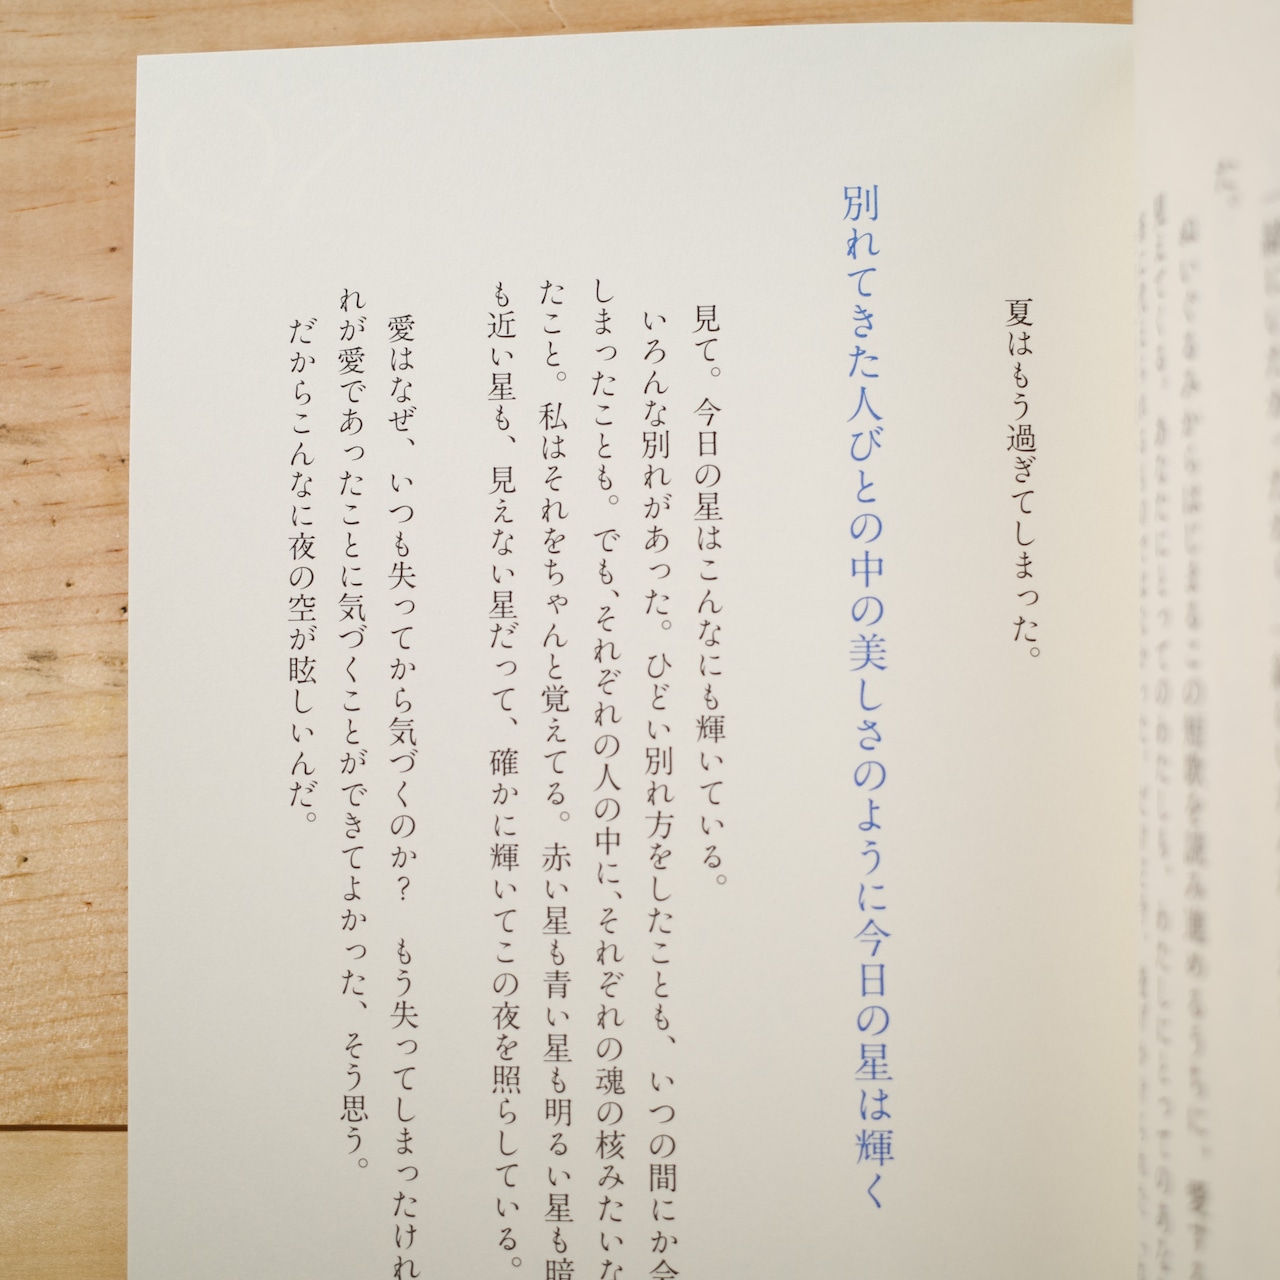 夏はもう過ぎてしまった。
別れてきた人びとの中の美しさのように今日の星は輝く
見て。今日の星はこんなにも輝いている。
いろんな別れがあった。ひどい別れ方をしたことも、いつの間にか会
しまったことも。でも、それぞれの人の中に、それぞれの魂の核みたいな
たこと。私はそれをちゃんと覚えてる。赤い星も青い星も明るい星も暗
も近い星も、見えない星だって、確かに輝いてこの夜を照らしている。
愛はなぜ、いつも失ってから気づくのか？　もう失ってしまったけれ
れが愛であったことに気づくことができてよかった、そう思う。
だからこんなに夜の空が眩しいんだ。